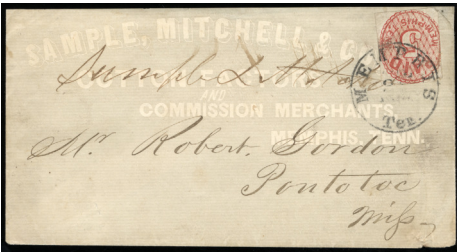 SAMPLE, MITCHELL & CO.
AND
COMMISSION MERCHANTS,
MEMPHIS, TENN.
MEMPHIS
Ten.
Mr Robert. Gordon
Pontotoc
Miss